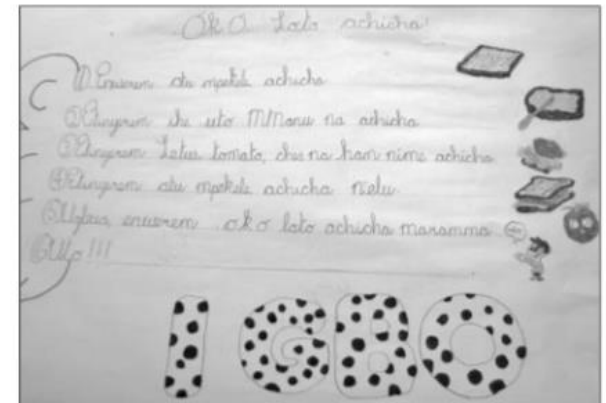 Oko Loto achicha!
① Enwerem otu mpekele achicha
② Etinyerem ihe uto MManu na achicha
③ Etinyerem Letus tomato, chis na ham nime achicha
④ Etinyerem otu mpekele achicha nelu
⑤ Ugbua, enwerem oko loto achicha maramma
⑥ Uto!!!
IGBO